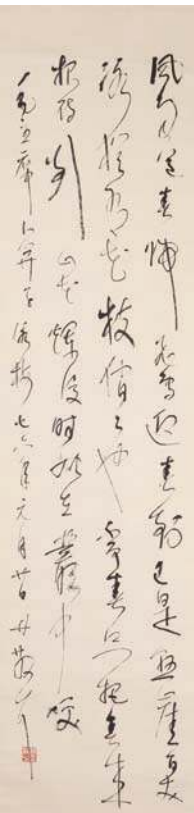 風雨送春歸飛雪迎春到已是懸崖百丈
冰猶有花枝俏〻也不爭春只把春來
報待到山花爛漫時她在叢中笑
毛主席卜算子詠梅 七六年元月廿日 林散耳